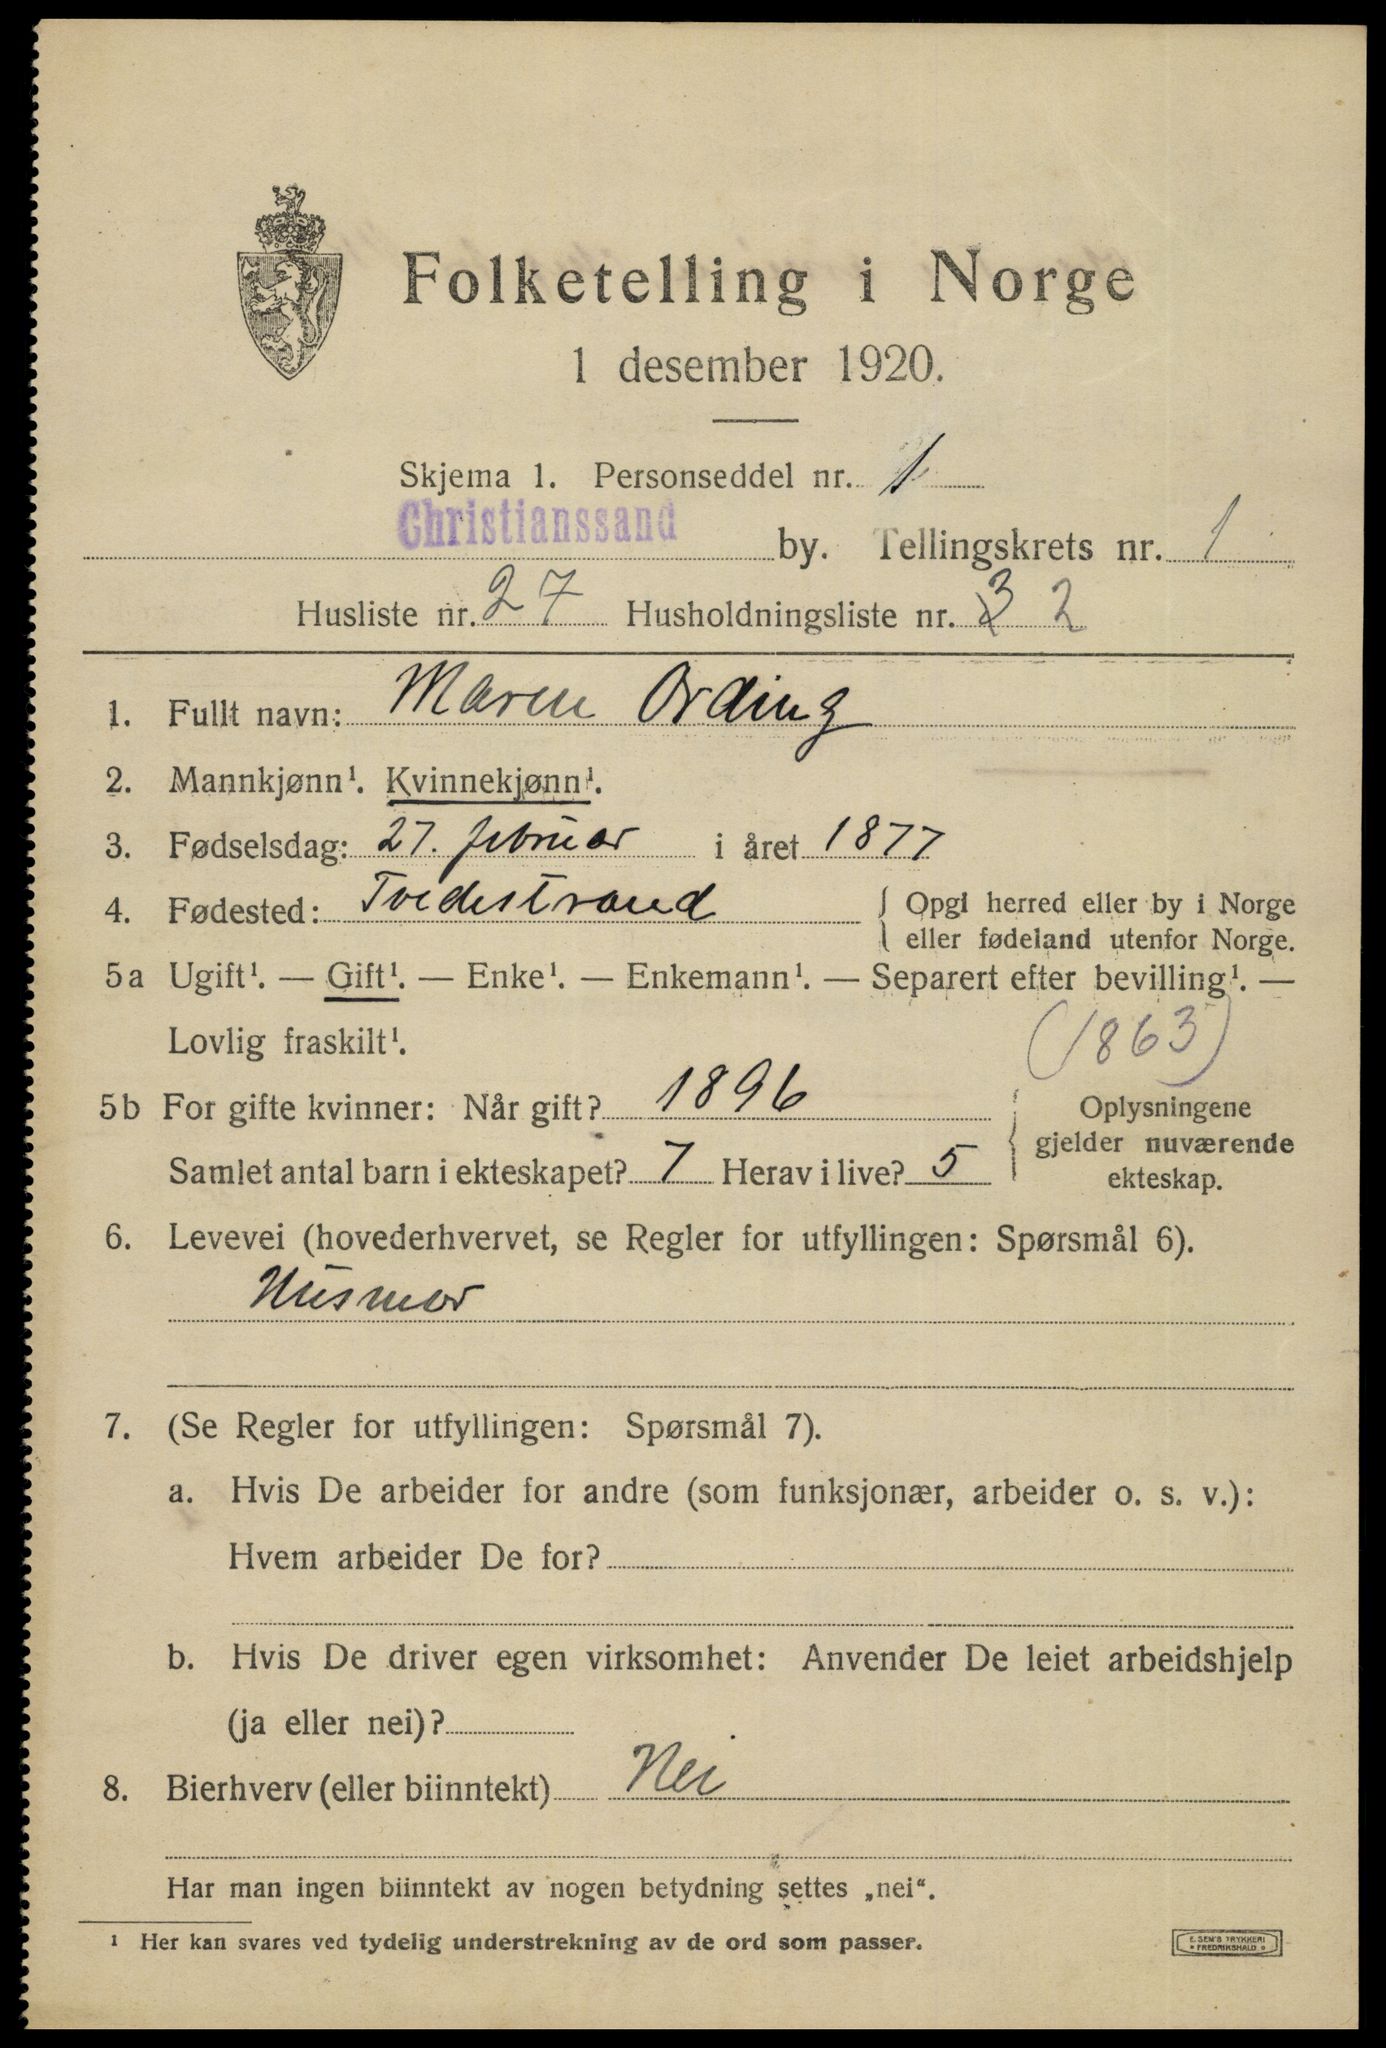 Folketelling i Norge
1 desember 1920.
Skjema 1. Personseddel nr. 1
Christianssand by. Tellingskrets nr. 1
Husliste nr. 27 Husholdningsliste nr. 3 2
1. Fullt navn: Maren Ording
2. Mannkjønn¹. Kvinnekjønn¹.
3. Fødselsdag: 27. februar i året 1877
4. Fødested: Tvedestrand { Opgl herred eller by i Norge
eller fødeland utenfor Norge.
5a Ugift¹. — Gift¹. — Enke¹. — Enkemann¹. — Separert efter bevilling¹. —
Lovlig fraskilt¹. (1863)
5b For gifte kvinner: Når gift? 1896 { Oplysningene
gjelder nuværende
Samlet antal barn i ekteskapet? 7 Herav i live? 5 ekteskap.
6. Levevei (hovederhvervet, se Regler for utfyllingen: Spørsmål 6).
Husmor
7. (Se Regler for utfyllingen: Spørsmål 7).
a. Hvis De arbeider for andre (som funksjonær, arbeider o. s. v.):
Hvem arbeider De for?
b. Hvis De driver egen virksomhet: Anvender De leiet arbeidshjelp
(ja eller nei)?
8. Bierhverv (eller biinntekt) Nei
Har man ingen biinntekt av nogen betydning settes „nei“.
¹ Her kan svares ved tydelig understrekning av de ord som passer.
E. SEM'S TRYKKERI
FREDRIKSHALD